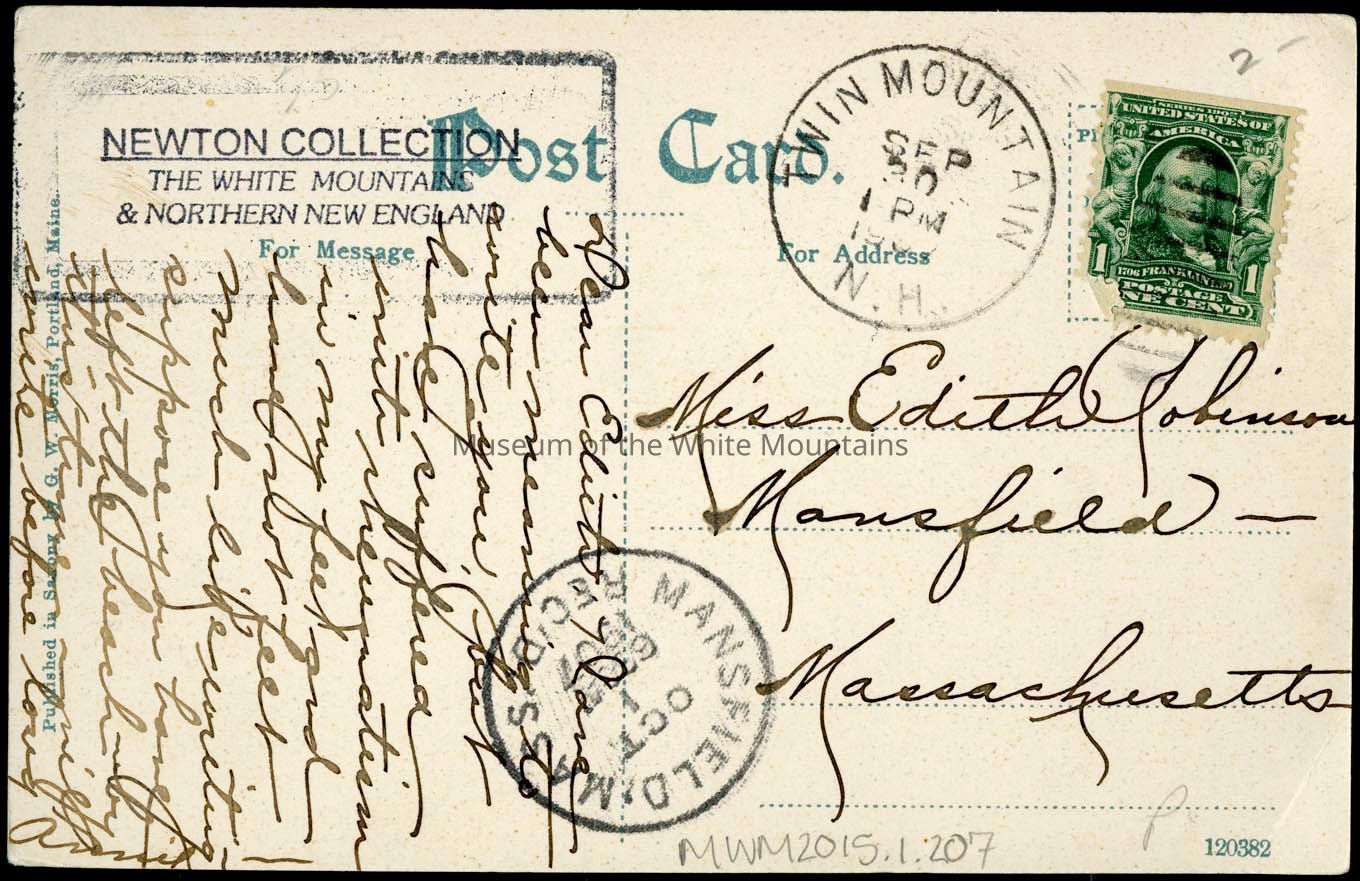 NEWTON COLLECTION
THE WHITE MOUNTAINS
& NORTHERN NEW ENGLAND
Post Card.
For Message
For Address
TWIN MOUNTAIN
SEP
30
1 PM
N.H.
SERIES 1902
UNITED STATES OF
AMERICA
1706 FRANKLIN 1790
1 1
POSTAGE
ONE CENT
2-
Miss Edith Robinson
Mansfield —
Massachusetts
Dear Edith, I have
been meaning to
write you, but
have suffered
with rheumatism
in my feet and
hand, not feet
much like writing
suppose you have
left the beach by
this time
write before long
Museum of the White Mountains
MANSFIELD, MASS.
REC'D.
OCT
1
1907
Published in Saxony by G. W. Morris, Portland, Maine.
MWM2015.1.207
120382